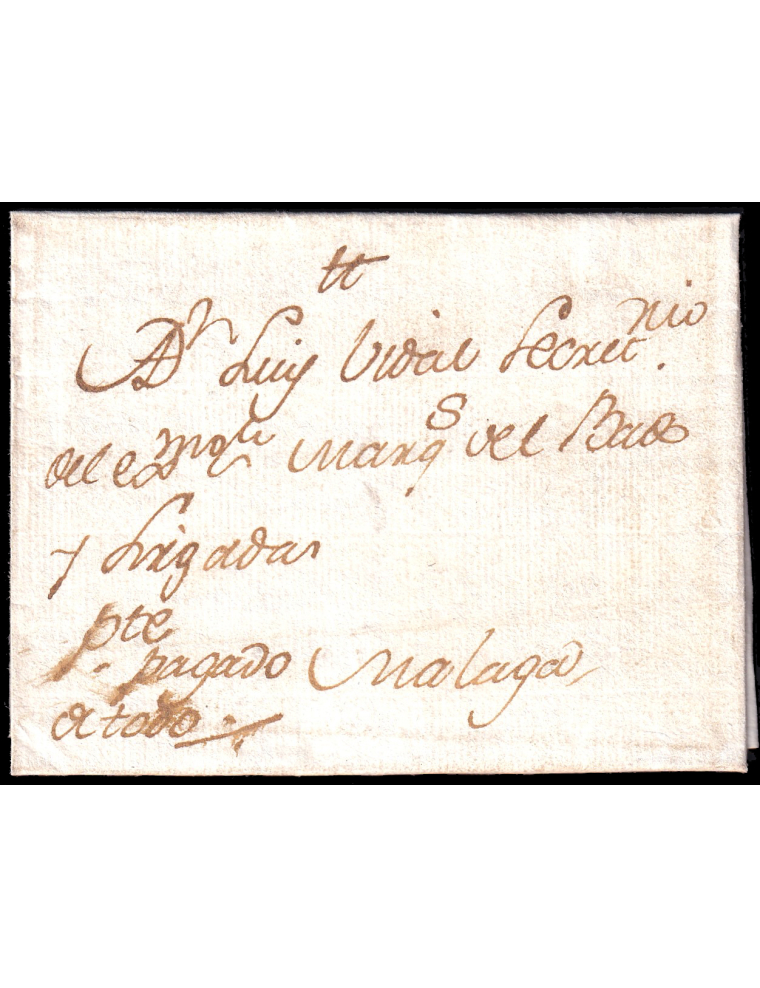 tt
A Dn Luis Vidal Secretrio
del Marqs del
y Brigadas
pte pagado Malaga
a todo